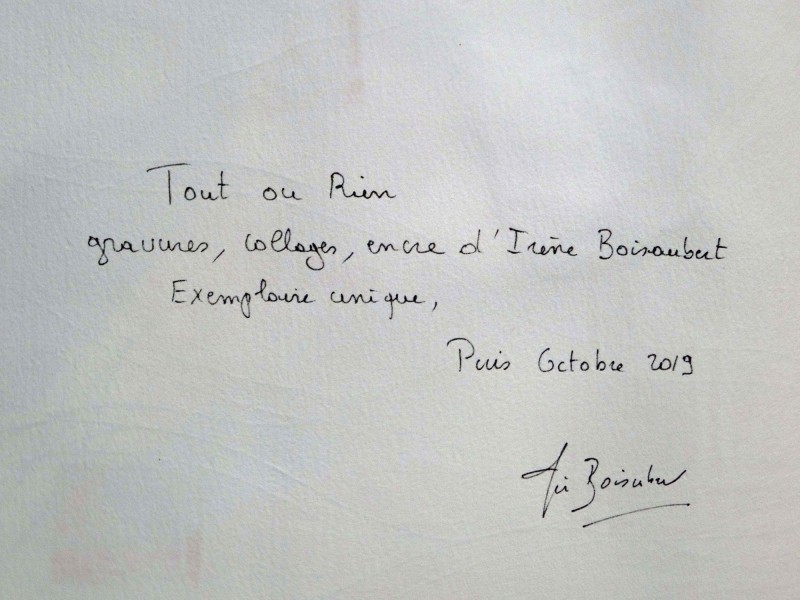 Tout ou Rien
gravures, collages, encre d'Irène Boisaubert
Exemplaire unique,
Paris Octobre 2019
Boisaubert